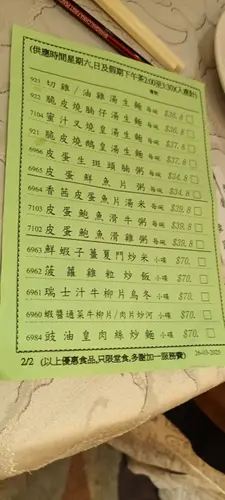 (供應時間星期六,日及假期下午茶2:00至3:30入座計)
921 切雞/油雞湯生麵 每碗 $36.8
922 脆皮燒腩仔湯生麵 每碗 $36.8
7104 蜜汁叉燒皇湯生麵 每碗 $37.8
921 脆皮燒鵝皇湯生麵 每碗 $37.8
6966 皮蛋生斑頭腩粥 每碗 $34.8
6965 皮蛋鮮魚片粥 每碗 $34.8
6964 香茜皮蛋魚片湯米 每碗 $39.8
7103 皮蛋鮑魚滑牛粥 每碗 $39.8
7102 皮蛋鮑魚滑雞粥 每碗 $39.8
6963 鮮蝦子薑蔥廈門炒米 小碟 $70.
6962 菠蘿雞粒炒飯 小碟 $70.
6961 瑞士汁牛柳片烏冬 小碟 $70.
6960 蝦醬通菜牛柳片/肉片炒河 小碟 $70.
6984 豉油皇肉絲炒麵 小碟 $70.
2/2 (以上優惠食品,只限堂食,多謝加一服務費) 26-03-2025